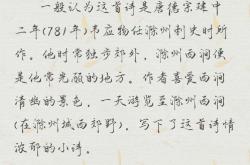 一般认为这首诗是唐德宗建中
二年(781年)韦应物任滁州刺史时所
作。他时常独步郊外,滁州西涧便
是他常光顾的地方。作者喜爱西涧
清幽的景色,一天游览至滁州西涧
(在滁州城西郊野),写下了这首诗情
浓郁的小诗。